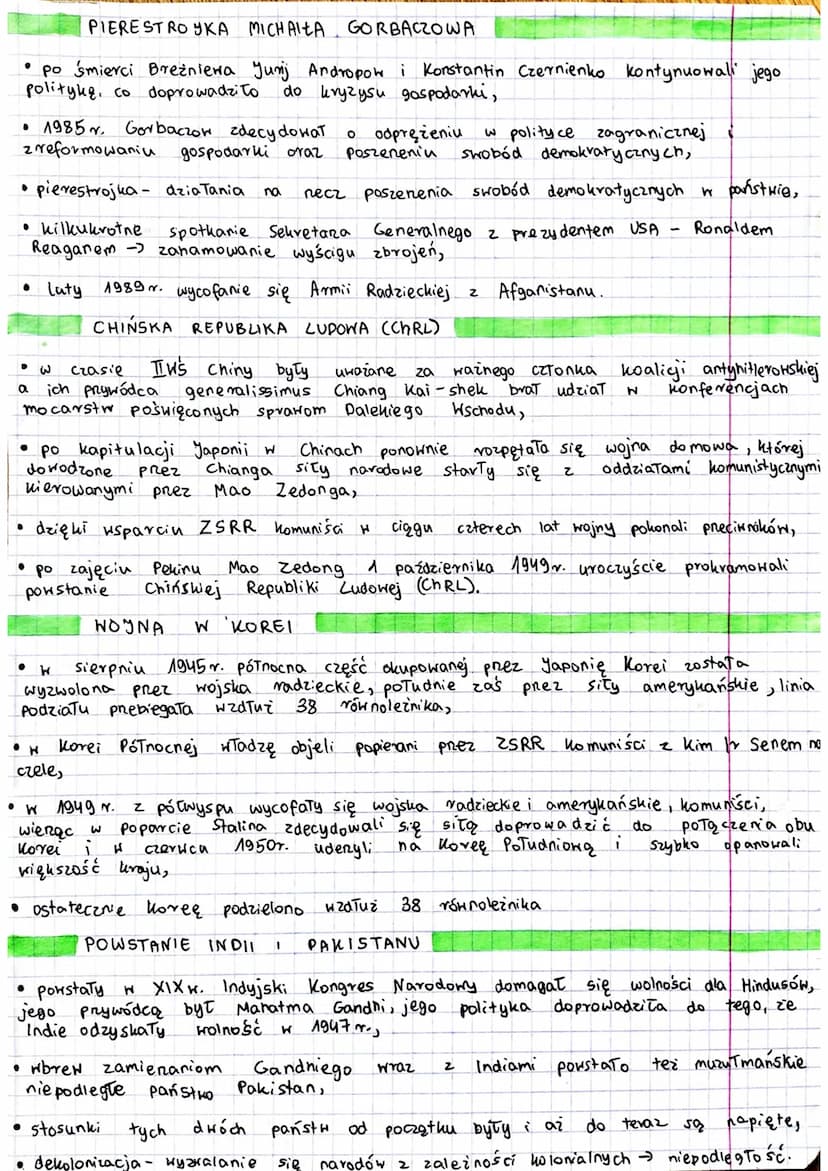 PIERESTROJKA MICHAIŁA GORBACZOWA
• po śmierci Breżniewa Jurij Andropow i Konstantin Czernienko kontynuowali jego
politykę, co doprowadziło do kryzysu gospodarki,
• 1985 r. Gorbaczow zdecydował o odprężeniu w polityce zagranicznej i
zreformowaniu gospodarki oraz poszerzeniu swobód demokratycznych,
• pierestrojka - działania na rzecz poszerzenia swobód demokratycznych w państwie,
• kilkukrotne spotkanie Sekretarza Generalnego z prezydentem USA - Ronaldem
Reaganem → zahamowanie wyścigu zbrojeń,
• luty 1989 r. wycofanie się Armii Radzieckiej z Afganistanu.
CHIŃSKA REPUBLIKA LUDOWA (ChRL)
• w czasie IIWŚ Chiny były uważane za ważnego członka koalicji antyhitlerowskiej
a ich przywódca generalissimus Chiang Kai-shek brał udział w konferencjach
mocarstw poświęconych sprawom Dalekiego Wschodu,
• po kapitulacji Japonii w Chinach ponownie rozpętała się wojna domowa, której
dowodzone przez Chianga siły narodowe starły się z oddziałami komunistycznymi
kierowanymi przez Mao Zedonga,
• dzięki wsparciu ZSRR komuniści w ciągu czterech lat wojny pokonali przeciwników,
• po zajęciu Pekinu Mao Zedong 1 października 1949 r. uroczyście prokramowali
powstanie Chińskiej Republiki Ludowej (ChRL).
WOJNA W KOREI
• w sierpniu 1945 r. północna część okupowanej przez Japonię Korei została
wyzwolona przez wojska radzieckie, południe zaś przez siły amerykańskie, linia
podziału przebiegała wzdłuż 38 równoleżnika,
• w Korei Północnej władzę objeli popierani przez ZSRR komuniści z Kim Ir Senem na
czele,
• w 1949 r. z półwyspu wycofały się wojska radzieckie i amerykańskie, komuniści,
wierząc w poparcie Stalina zdecydowali się siłą doprowadzić do połączenia obu
Korei i w czerwcu 1950r. uderzyli na Koreę Południową i szybko opanowali
większość kraju,
• ostatecznie Koreę podzielono wzdłuż 38 równoleżnika
POWSTANIE INDII I PAKISTANU
• powstały w XIX w. Indyjski Kongres Narodowy domagał się wolności dla Hindusów,
jego przywódcą był Mahatma Gandhi, jego polityka doprowadziła do tego, że
Indie odzyskały wolność w 1947 r.,
• wbrew zamierzaniom Gandhiego wraz z Indiami powstało też muzułmańskie
niepodległe państwo Pakistan,
• stosunki tych dwóch państw od początku były i aż do teraz są napięte,
• dekolonizacja - wyzwalanie się narodów z zależności kolonialnych → niepodległość.